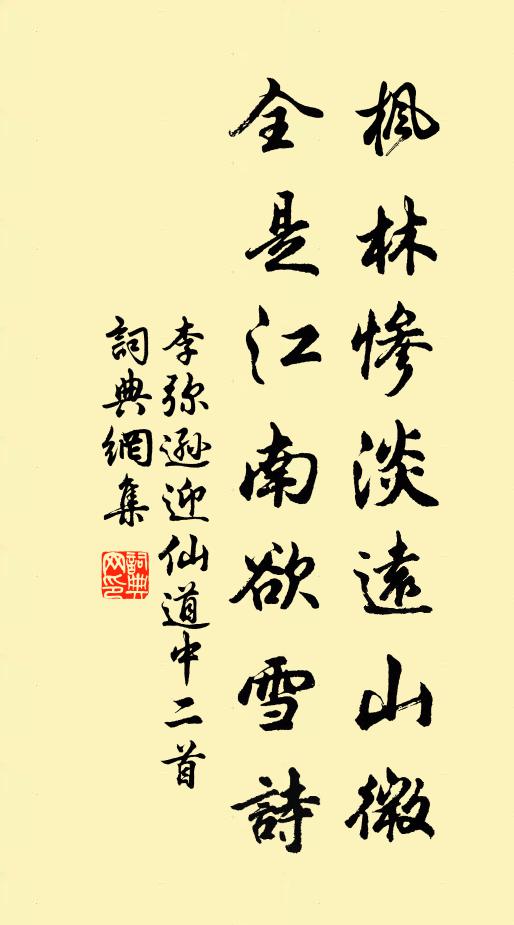 楓林慘淡遠山微
全是江南欲雪詩
李弥遜迎仙道中二首
詞典網集
詞典
网印